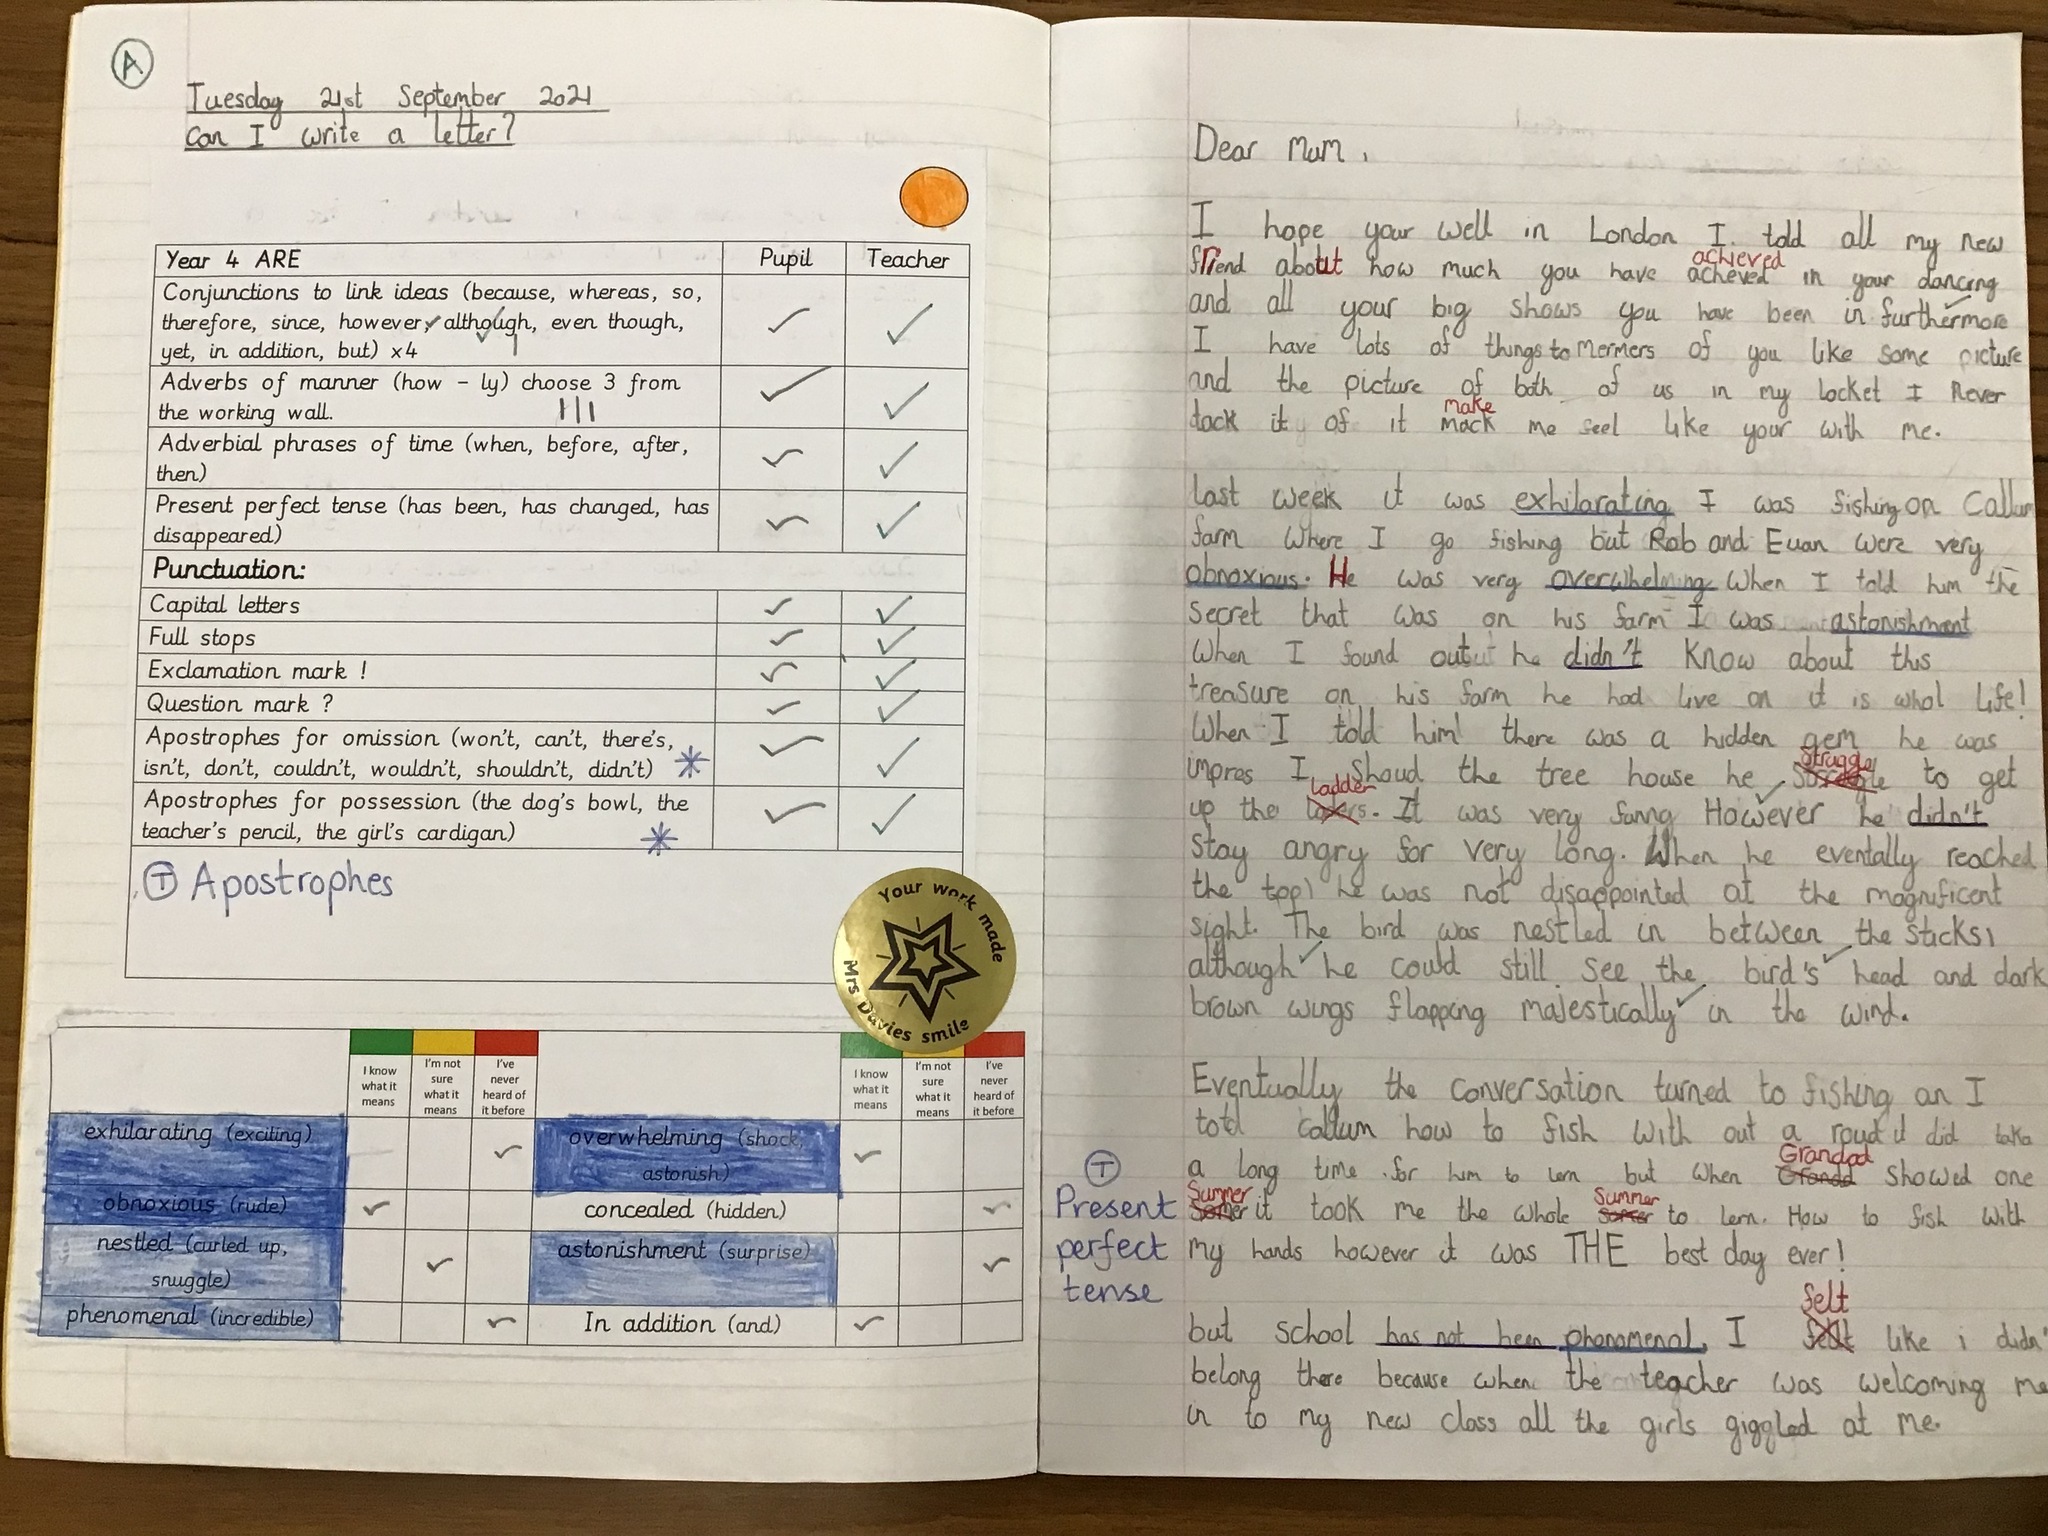 A
Tuesday 21st September 2021
Can I write a letter?
Year 4 ARE Pupil Teacher
Conjunctions to link ideas (because, whereas, so,
therefore, since, however, although, even though,
yet, in addition, but) x4
Adverbs of manner (how – ly) choose 3 from
the working wall.
Adverbial phrases of time (when, before, after,
then)
Present perfect tense (has been, has changed, has
disappeared)
Punctuation:
Capital letters
Full stops
Exclamation mark !
Question mark ?
Apostrophes for omission (won't, can't, there's,
isn't, don't, couldn't, wouldn't, shouldn't, didn't)
Apostrophes for possession (the dog's bowl, the
teacher's pencil, the girl's cardigan)
T Apostrophes
Your work made
Mrs Davies smile
I know
what it
means
I'm not
sure
what it
means
I've
never
heard of
it before
I know
what it
means
I'm not
sure
what it
means
I've
never
heard of
it before
exhilarating (exciting)
overwhelming (shock,
astonish)
obnoxious (rude)
concealed (hidden)
nestled (curled up,
snuggle)
astonishment (surprise)
phenomenal (incredible)
In addition (and)
Dear Mum,
I hope your well in London I told all my new
achieved
friend about how much you have acheved in your dancing
and all your big shows you have been in furthermore
I have lots of things to mermers of you like some picture
and the picture of both of us in my locket I Never
make
tack it of it mack me feel like your with me.
last week it was exhilarating I was fishing on Callum
farm Where I go fishing but Rob and Euan were very
obnoxious. He was very overwhelming When I told him the
secret that was on his farm I was astonishment
When I found out he didn't Know about this
treasure on his farm he had live on it is whol life!
When I told him there was a hidden gem he was
struggle
impres I shoud the tree house he to get
ladder
up the . It was very funny However he didn't
stay angry for very long. When he eventally reached
the top he was not disappointed at the magnificent
sight. The bird was nestled in between the sticks,
although he could still see the bird's head and dark
brown wings flapping majestically in the wind.
Eventually the conversation turned to fishing an I
told callum how to fish with out a it did take
Grandad
a long time for him to lern but when showed one
Summer Summer
it took me the whole to lern. How to fish with
my hands however it was THE best day ever!
T
Present
perfect
tense
felt
but school has not been phenomenal, I like i didn'
belong there because when the teacher was welcoming me
in to my new class all the girls giggled at me.